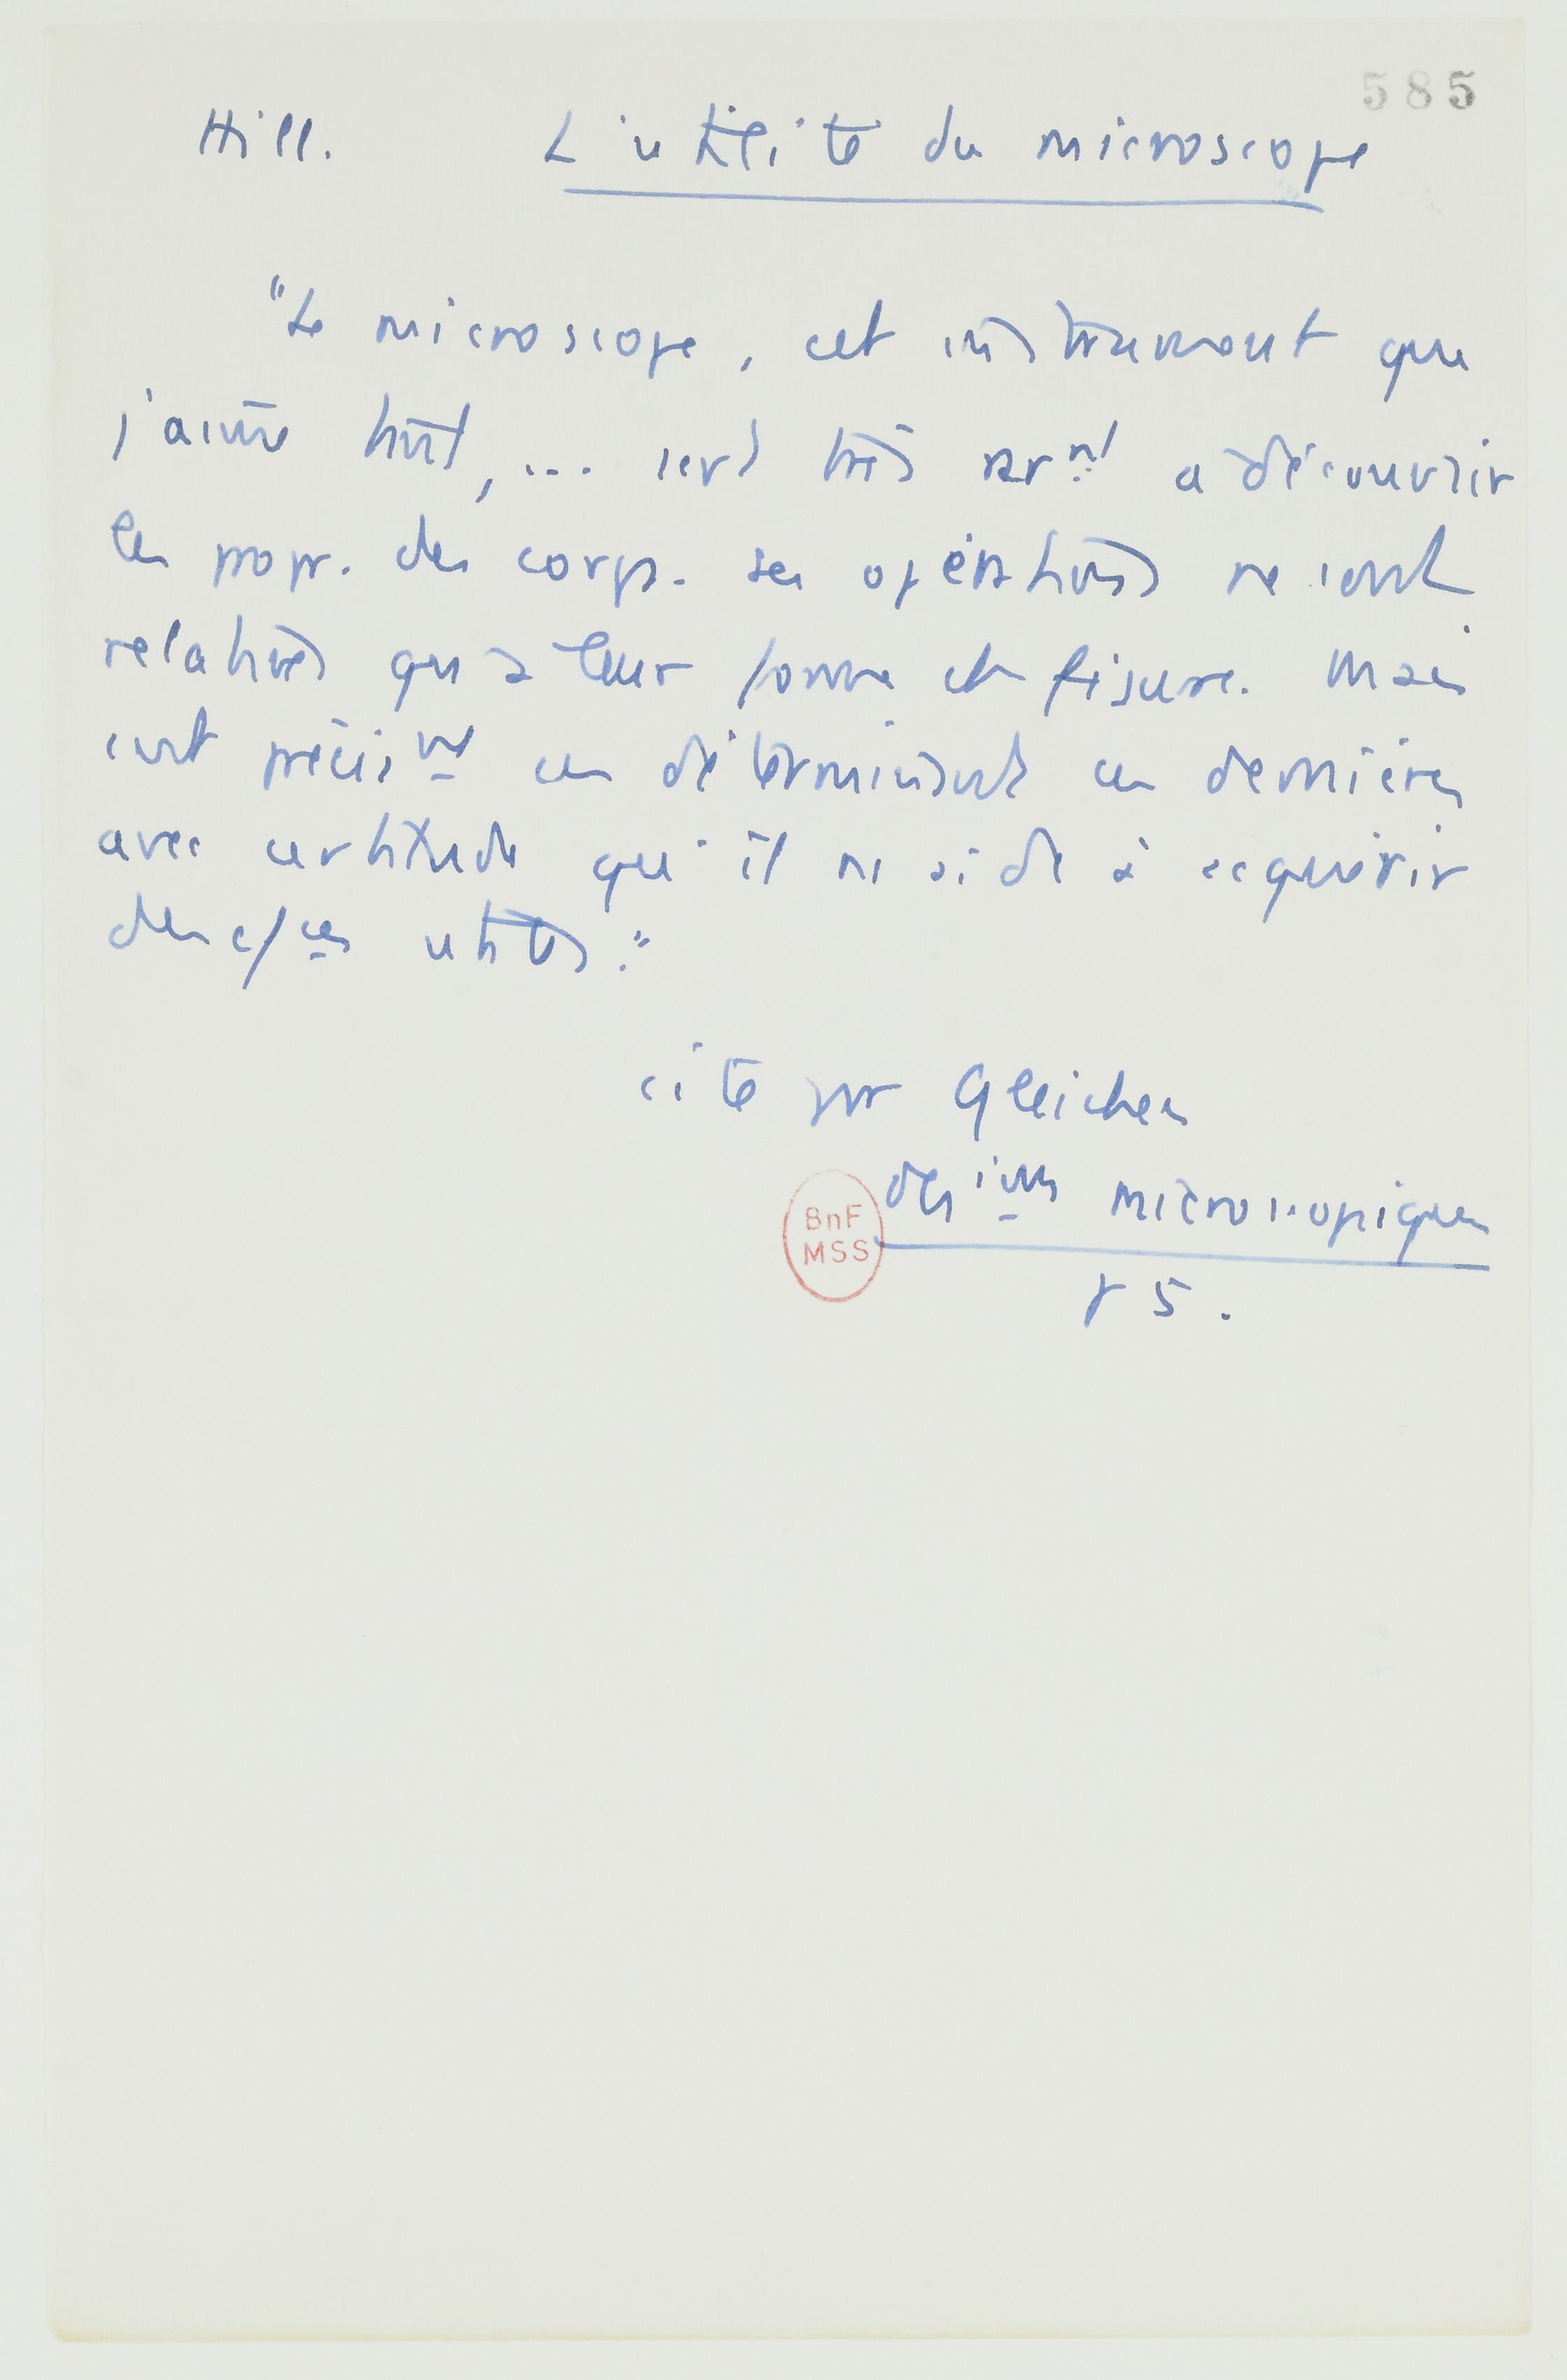 585
Hill. L'utilité du microscope
"Le microscope, cet instrument que
j'aime tant, ... sert très rarnt a découvrir
les propr. des corps. Ses opérations ne sont
relatives qu'à leur forme et figure. Mais
c'est précisnt en déterminant ces dernières
avec certitude qu'il ns aide à acquérir
des c/ces utiles."
cité par Gleichen
des microscopiques
BnF
MSS
p 5.